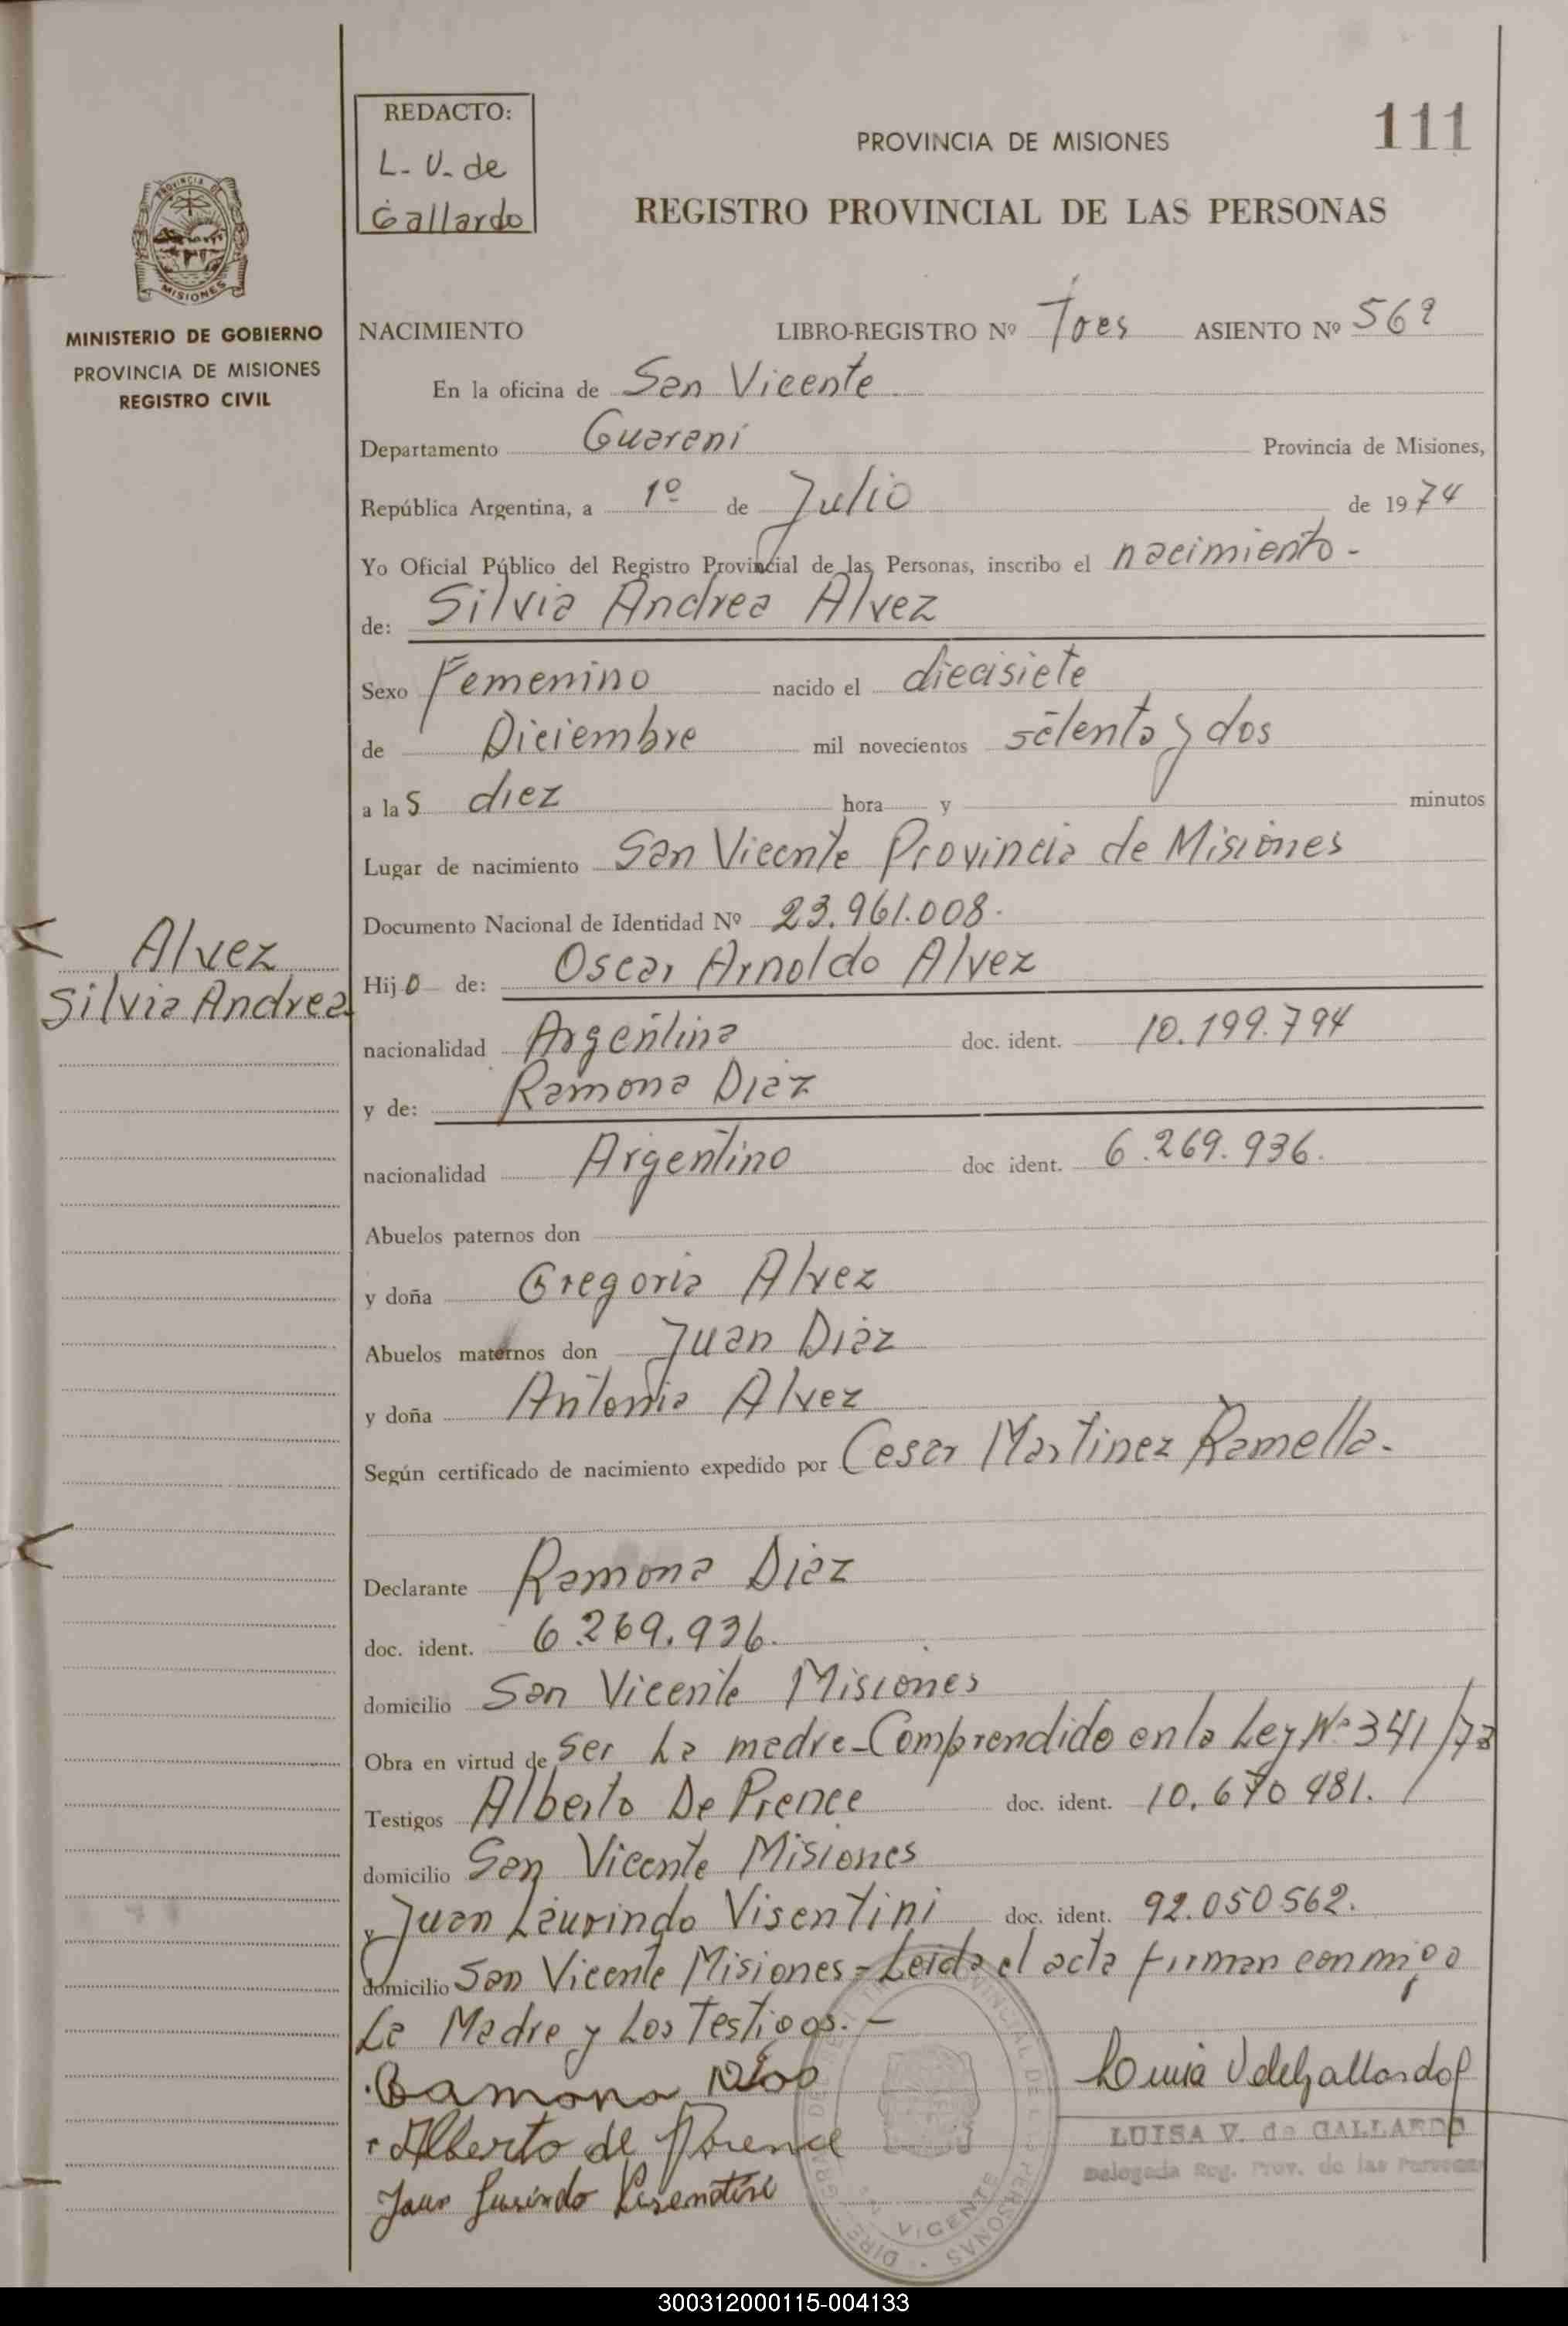 REDACTO:
L. V. de
Gallardo
111
PROVINCIA DE MISIONES
REGISTRO PROVINCIAL DE LAS PERSONAS
PROVINCIA DE
MISIONES
MINISTERIO DE GOBIERNO
PROVINCIA DE MISIONES
REGISTRO CIVIL
NACIMIENTO LIBRO-REGISTRO Nº Tres ASIENTO Nº 562
En la oficina de San Vicente
Departamento Guarani Provincia de Misiones,
República Argentina, a 1º de Julio de 1974
Yo Oficial Público del Registro Provincial de las Personas, inscribo el nacimiento -
de: Silvia Andrea Alvez
Sexo Femenino nacido el diecisiete
de Diciembre mil novecientos setenta y dos
a las diez hora y minutos
Lugar de nacimiento San Vicente Provincia de Misiones
Documento Nacional de Identidad Nº 23.961.008.
Alvez
Silvia Andrea
Hijo de: Oscar Arnoldo Alvez
nacionalidad Argentina doc. ident. 10.199.794
y de: Ramona Diaz
nacionalidad Argentino doc ident. 6.269.936.
Abuelos paternos don
y doña Gregoria Alvez
Abuelos maternos don Juan Diaz
y doña Antonia Alvez
Según certificado de nacimiento expedido por Cesar Martinez Ramella.
Declarante Ramona Diaz
doc. ident. 6.269.936.
domicilio San Vicente Misiones
Obra en virtud de ser La madre - Comprendido en la Ley Nº 341/73
Testigos Alberto De Prence doc. ident. 10.670 481.
domicilio San Vicente Misiones
y Juan Laurindo Visentini doc. ident. 92.050 562.
domicilio San Vicente Misiones - Leida el acta firman conmigo
La Madre y Los Testigos. -
Ramona Diaz
Alberto de Prence
VICENTE
LUISA V. de GALLARDO
Delegada Reg. Prov. de las Personas
300312000115-004133